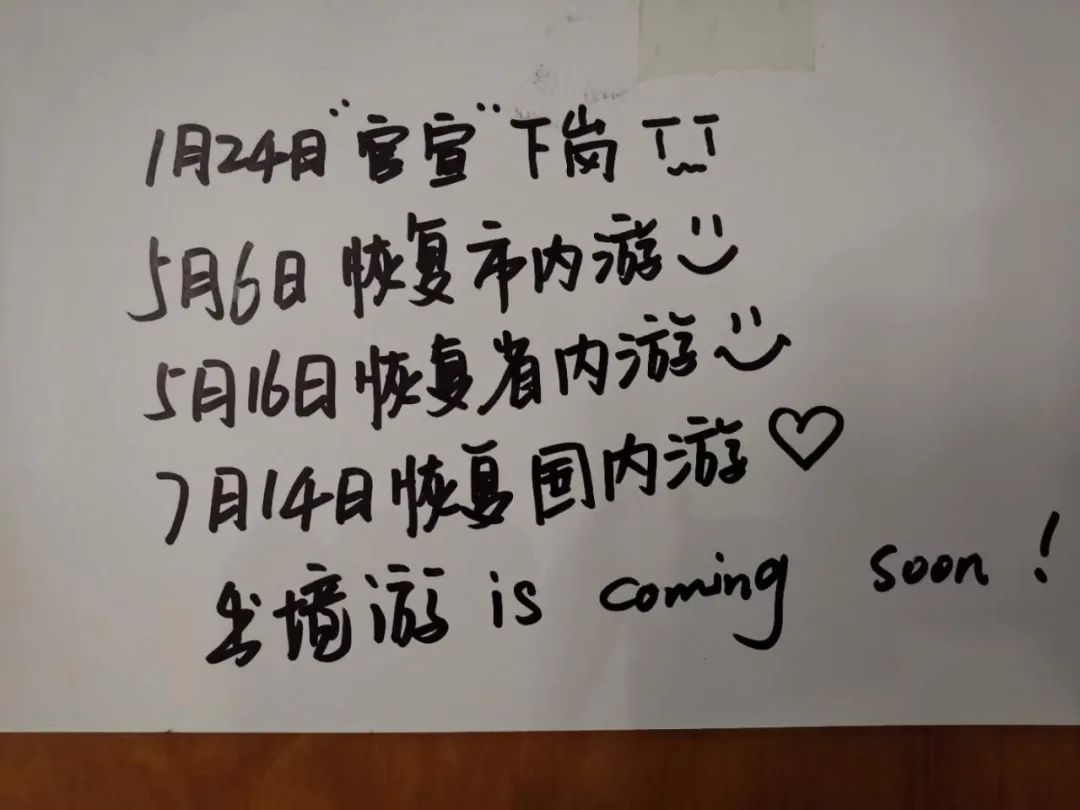 1月24日"官宣"下岗
5月6日恢复市内游
5月16日恢复省内游
7月14日恢复国内游
出境游 is coming soon!